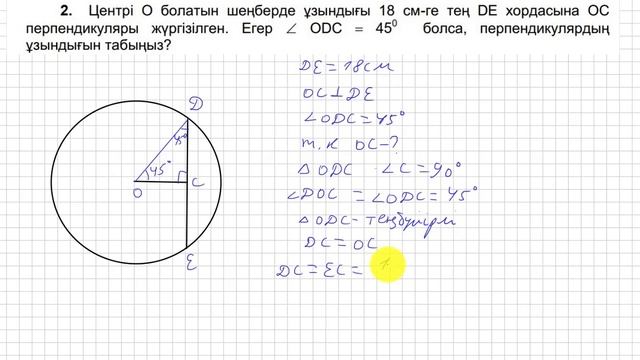 2. Центрі О болатын шеңберде ұзындығы 18 см-ге тең DE хордасына ОС
перпендикуляры жүргізілген. Егер ∠ ODC = 45⁰ болса, перпендикулярдың
ұзындығын табыңыз?
DE = 18см
OC⊥DE
∠ODC = 45°
т.к OC-?
△ODC ∠C = 90°
∠DOC = ∠ODC = 45°
△ODC-
DC = OC
DC = EC =
D
45°
45°
O
C
E